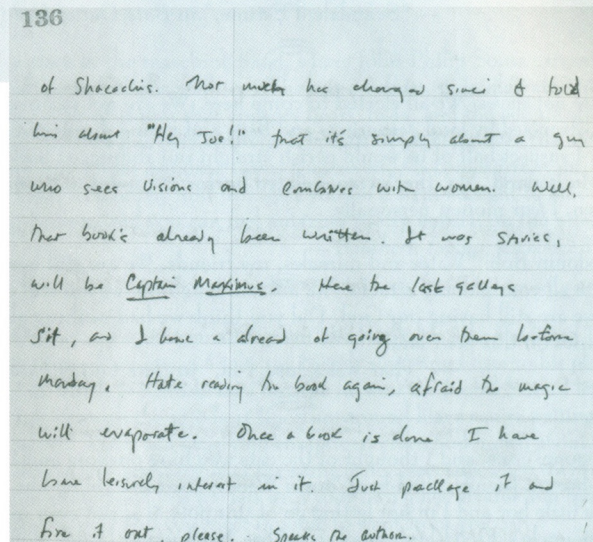 136
of Shacochis. Not much has changed since I told
him about "Hey Joe!" that it's simply about a guy
who sees visions and combines with women. Well,
that book's already been written. It was stories,
will be Captain Maximus. Here the last galleys
sit, and I have a dread of going over them before
Monday. Hate reading the book again, afraid the magic
will evaporate. Once a book is done I have
leisurely interest in it. Just package it and
fire it out, please. Speaks the author.